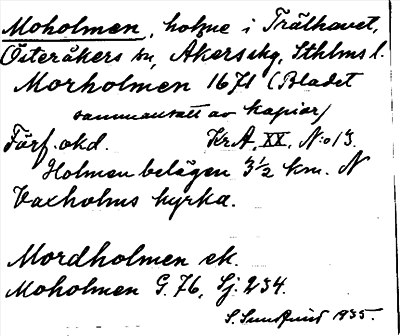 Moholmen, holme i Trälhavet,
Österåkers sn, Åkers skg, Sthlms l.
Morholmen 1671 (Bladet
sammansatt av kopior)
Förf. okd. Kr.A, XX, N:o 13.
Holmen belägen 3½ km. N
Vaxholms kyrka.
Mordholmen ek.
Moholmen G. 76, Sj. 234.
S. Sundquist 1935.